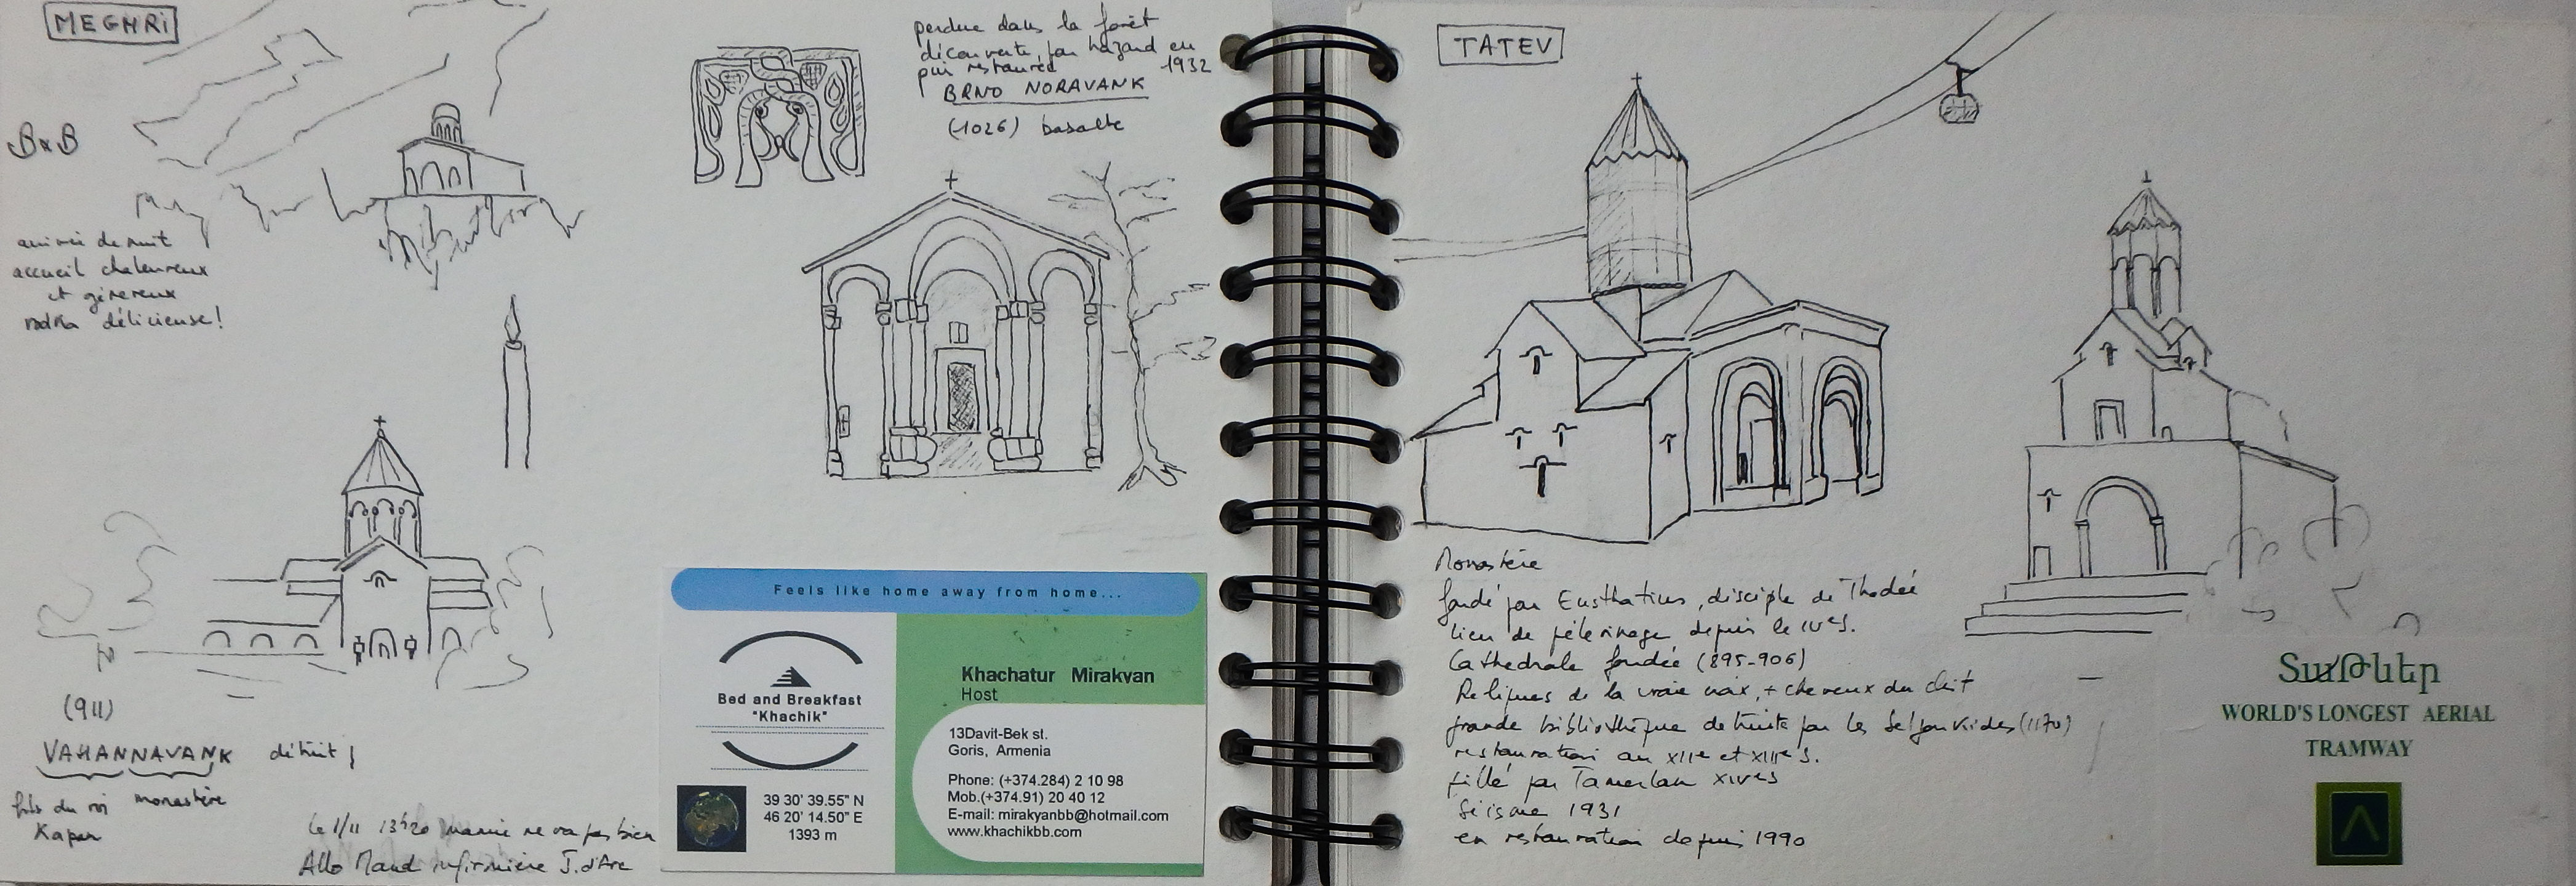 MEGHRI
B&B
arrivée de nuit
accueil chaleureux
et généreux
vodka délicieuse!
(911)
VAHANNAVANK détruit
fils du roi monastère
Kapan
le 1/11 13h20 mamie ne va pas bien
Allo Maud infirmière J. d'Arc
perdue dans la forêt
découverte par hazard en
1932
puis restaurée
BRNO NORAVANK
(1026) basalte
Feels like home away from home...
Bed and Breakfast
"Khachik"
39 30' 39.55" N
46 20' 14.50" E
1393 m
Khachatur Mirakyan
Host
13Davit-Bek st.
Goris, Armenia
Phone: (+374.284) 2 10 98
Mob.(+374.91) 20 40 12
E-mail: mirakyanbb@hotmail.com
www.khachikbb.com
TATEV
Monastère
fondé par Eusthatius, disciple de Thadée
lieu de pélerinage depuis le IVes.
Cathédrale fondée (895-906)
Reliques de la vraie croix, + cheveux du christ
grande bibliothèque detruite par les Seljoukides (1170)
restauration au XIIe et XIIIes.
pillé par Tamerlan XIVes
Séisme 1931
en restauration depuis 1990
ՏաԹևեր
WORLD'S LONGEST AERIAL
TRAMWAY